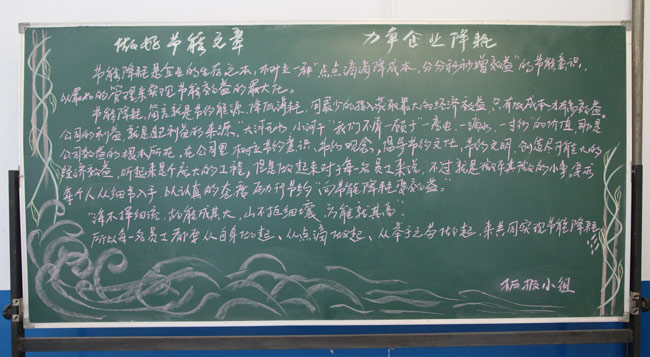 做好节能文章 力争企业降耗
节能降耗是企业的生存之本，树立一种“点点滴滴降成本，分分秒秒增效益”的节能意识，
以最好的管理来实现节能效益的最大化。
节能降耗，简言就是节约能源、降低消耗，用最少的投入去获取最大的经济效益，只有低成本才有高效益。
公司的利益，就是自己利益的来源。大河无水，小河干“我们不屑一顾于“一度电、一滴水、一寸纱”的价值，那是
公司效益的根本所在。在公司里树立节约意识、节约观念，倡导节约文化、节约文明，创造尽可能大的
经济效益。听起来是个庞大的工程，但是做起来对于每一名员工来说，不过就是微乎其微的小事，需要
每个人从细节入手，以认真的态度厉行节约“向节能降耗要效益”
“海不择细流，故能成其大，山不拒细壤，方能就其高”
所以每一名员工都要从自身做起、从点滴做起、从举手之劳做起，来共同实现节能降耗
板报小组